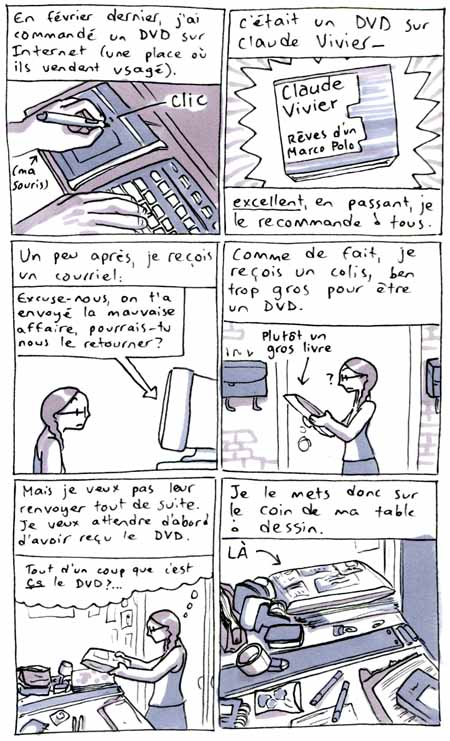 En février dernier, j'ai
commandé un DVD sur
Internet (une place où
ils vendent usagé).
CLIC
(ma
souris)
c'était un DVD sur
Claude Vivier_
Claude
Vivier
Rêves d'un
Marco Polo
excellent, en passant, je
le recommande à tous.
Un peu après, je reçois
un courriel:
Excuse-nous, on t'a
envoyé la mauvaise
affaire, pourrais-tu
nous le retourner?
Comme de fait, je
reçois un colis, ben
trop gros pour être
un DVD.
Plutôt un
gros livre
?
Mais je veux pas leur
renvoyer tout de suite.
Je veux attendre d'abord
d'avoir reçu le DVD.
Tout d'un coup que c'est
ça le DVD?...
Je le mets donc sur
le coin de ma table
à dessin.
LÀ